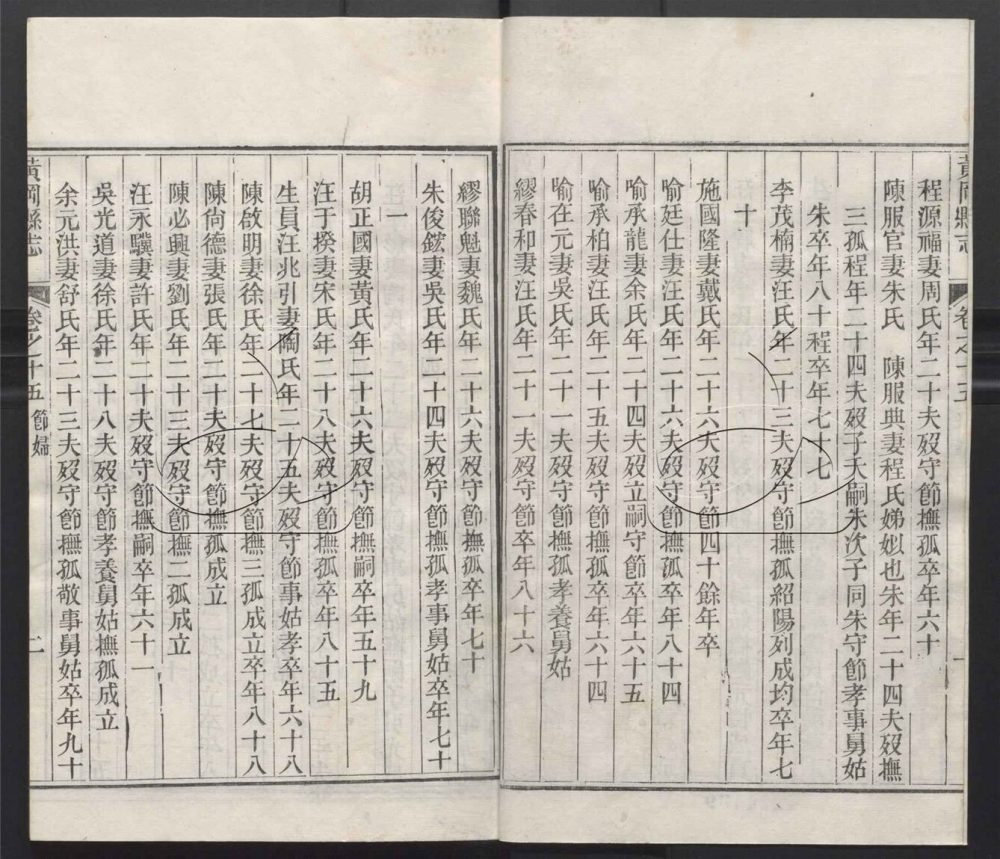 黃岡縣志 卷之十五 一
程源福妻周氏年二十夫歿守節撫孤卒年六十
陳服官妻朱氏 陳服典妻程氏娣姒也朱年二十四夫歿撫
三孤程年二十四夫歿子夭嗣朱次子同朱守節孝事舅姑
朱卒年八十程卒年七十七
李茂楠妻汪氏年二十三夫歿守節撫孤紹陽列成均卒年七
十
施國隆妻戴氏年二十六夫歿守節四十餘年卒
喻廷仕妻汪氏年二十六夫歿守節撫孤卒年八十四
喻承龍妻余氏年二十四夫歿立嗣守節卒年六十五
喻承柏妻汪氏年二十五夫歿守節撫孤卒年六十四
喻在元妻吳氏年二十一夫歿守節撫孤孝養舅姑
繆春和妻汪氏年二十一夫歿守節卒年八十六
繆聯魁妻魏氏年二十六夫歿守節撫孤卒年七十
朱俊鋐妻吳氏年二十四夫歿守節撫孤孝事舅姑卒年七十
一
胡正國妻黃氏年二十六夫歿守節撫嗣卒年五十九
汪于揆妻宋氏年二十八夫歿守節撫孤卒年八十五
生員汪兆引妻陶氏年二十五夫歿守節事姑孝卒年六十八
陳啟明妻徐氏年二十七夫歿守節撫三孤成立卒年八十八
陳尙德妻張氏年二十夫歿守節撫孤成立
陳必興妻劉氏年二十三夫歿守節撫二孤成立
汪永驥妻許氏年二十夫歿守節撫嗣卒年六十一
吳光道妻徐氏年二十八夫歿守節孝養舅姑撫孤成立
余元洪妻舒氏年二十三夫歿守節撫孤敬事舅姑卒年九十
黃岡縣志 卷之十五 節婦 二